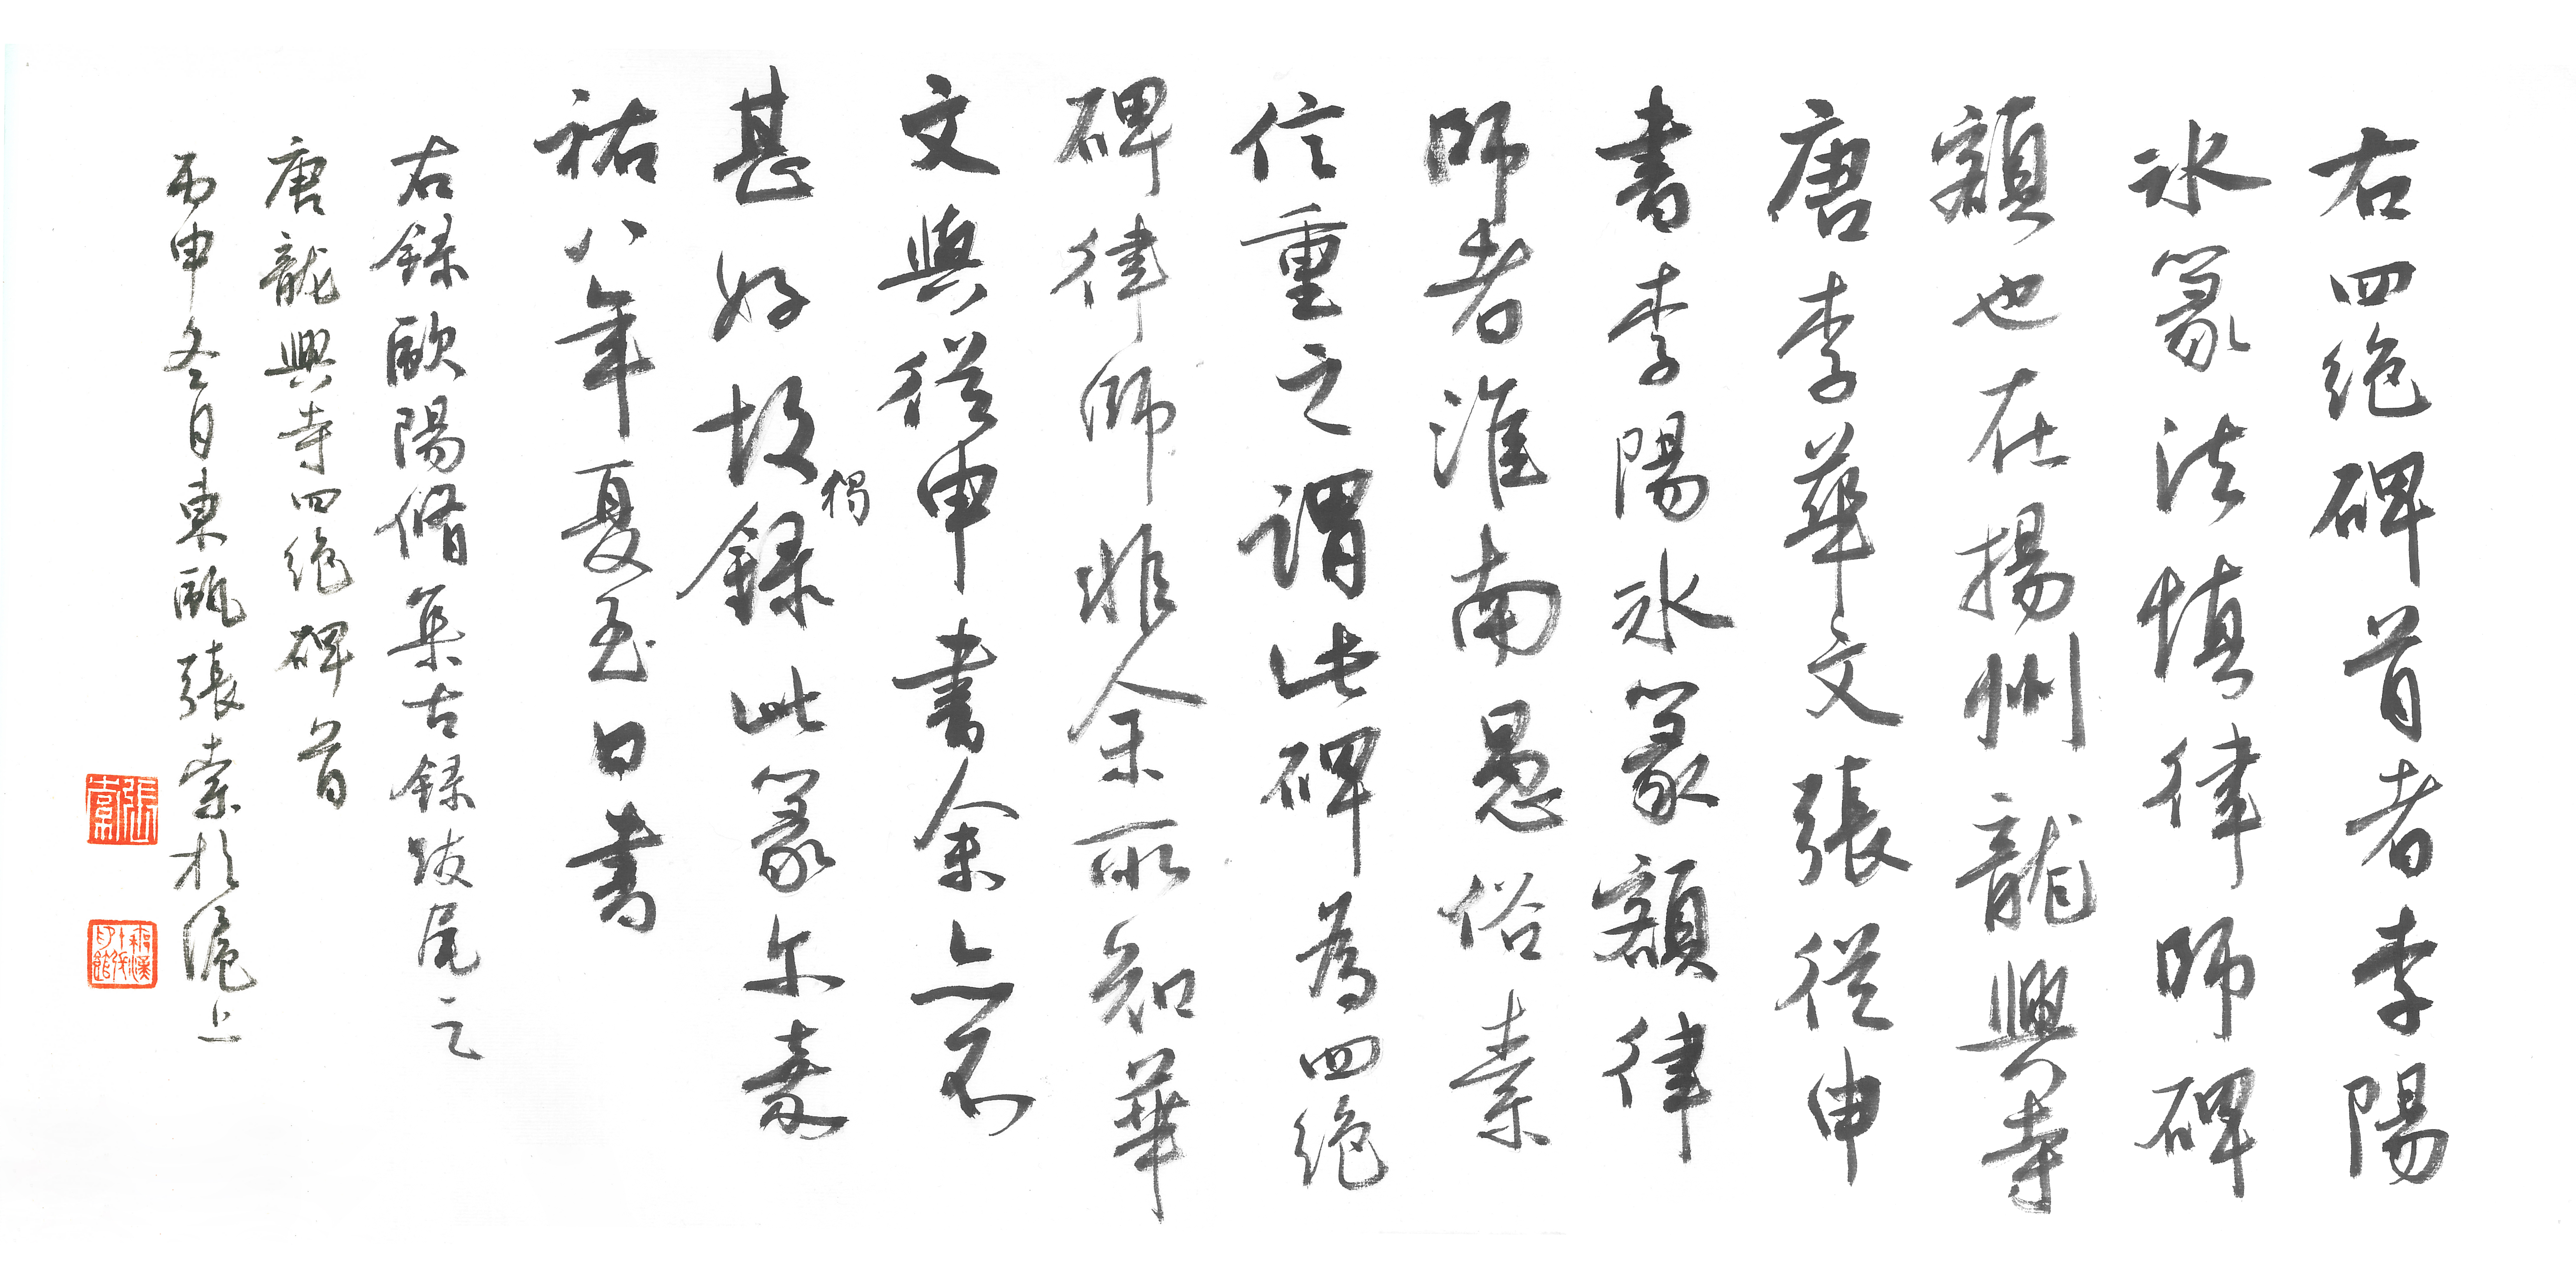 右四絶碑首者李陽
冰篆法慎律師碑
額也在揚州龍興寺
唐李華文張從申
書李陽冰篆額律
師者淮南愚俗素
信重之謂此碑為四絶
碑律師非余所知華
文與從申書余亦不
甚好故獨録此篆尓嘉
祐八年夏至日書
右録歐陽脩集古録跋尾之
唐龍興寺四絶碑首
丙申冬日東甌張索於滬上
張索